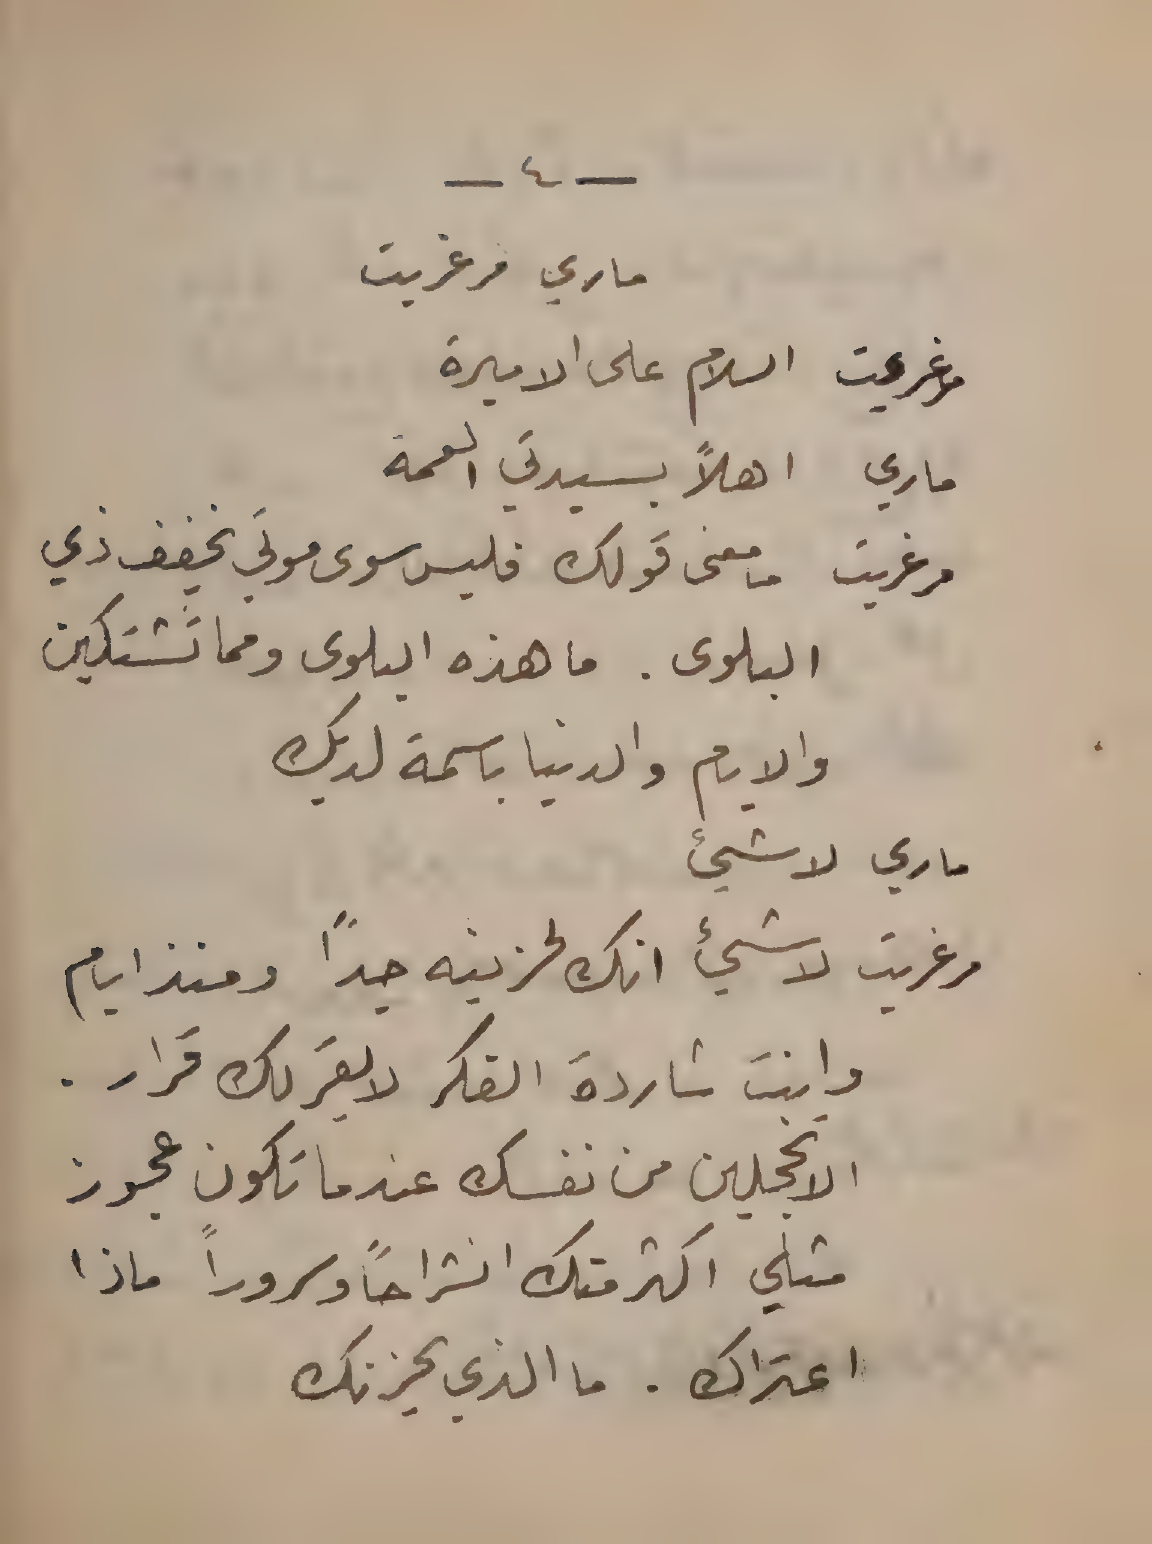 — ٤ —
ماري مرغريت
مرغريت السلام على الاميرة
ماري اهلاً بسيدتي العمة
مرغريت ما معنى قولك فليس سوى موتي يخفف ذي
البلوى . ما هذه البلوى ومما تشتكين
والايام والدنيا باسمة لديك
ماري لا شيئ
مرغريت لا شيئ انك لحزينه جداً ومنذ ايام
وانت شاردة الفكر لا يقر لك قرار .
الا تخجلين من نفسك عندما تكون عجوز
مثلي اكثر منك انشراحاً وسروراً ماذا
اعتراك . ما الذي يحزنك